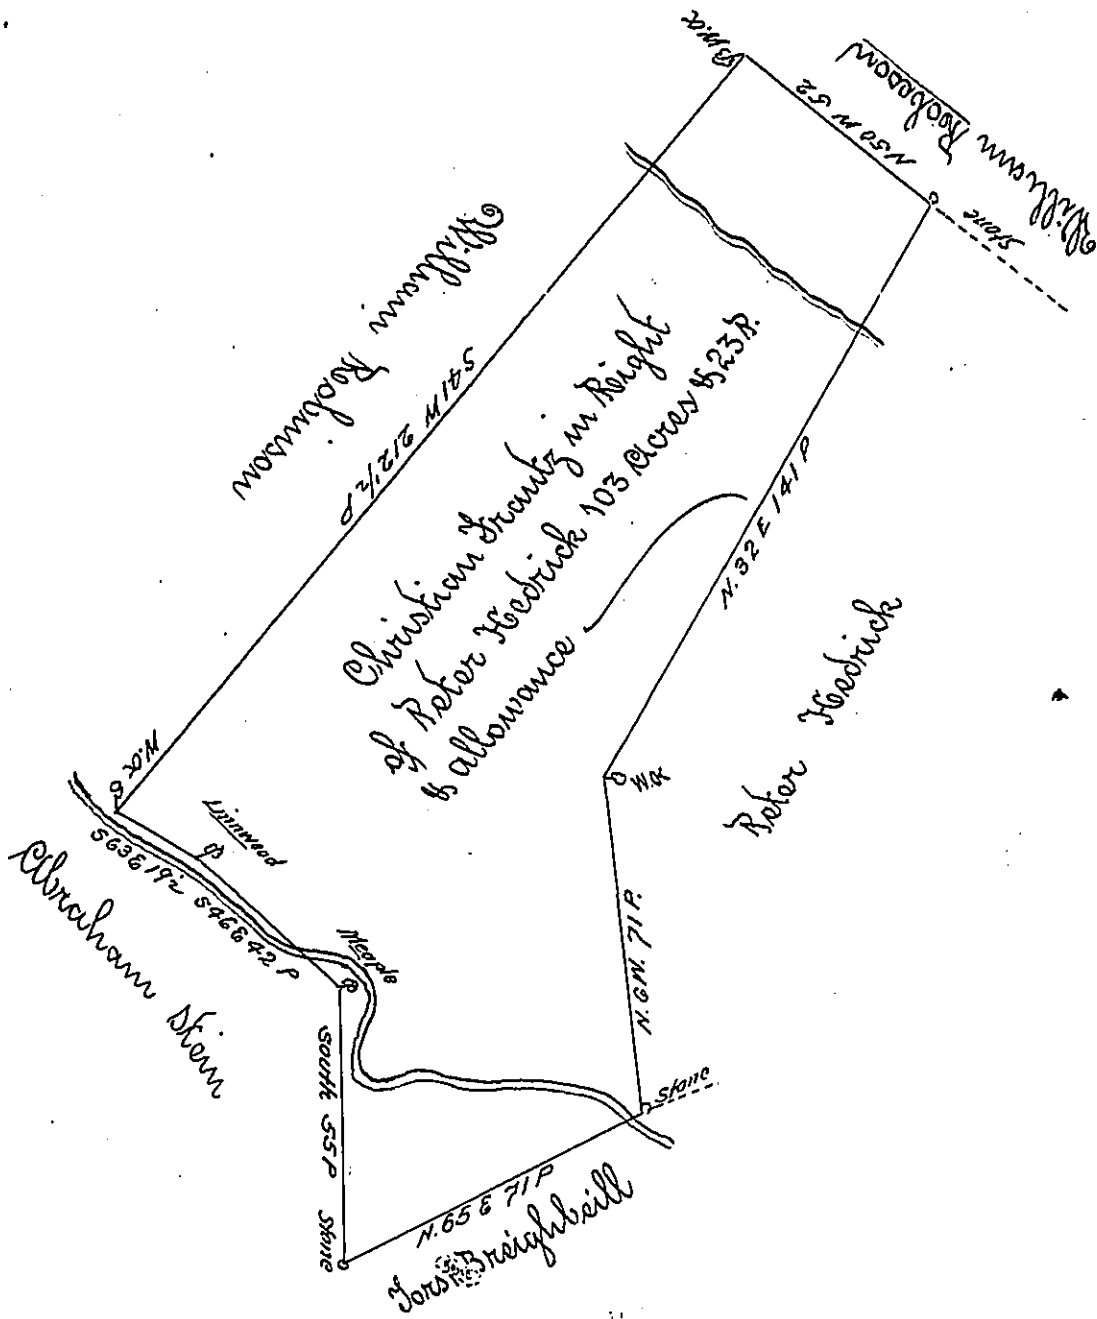 B.W.O
N 50 W 52
stone
William Robeson
William Robinson
S 41 W 212 1/2 P
Christian Frantz in Reight
of Peter Hedrick 103 Acres & 23 P.
& allowance
N. 32 E 141 P
Peter Hedrick
W.O
W.O
Linnwood
S 63 E 19 1/2
S 46 E 42 P
Abraham Stein
Meaple
N. 6 W. 71 P.
South 55 P
stone
Stone
N. 65 E 71 P
Breighbeill